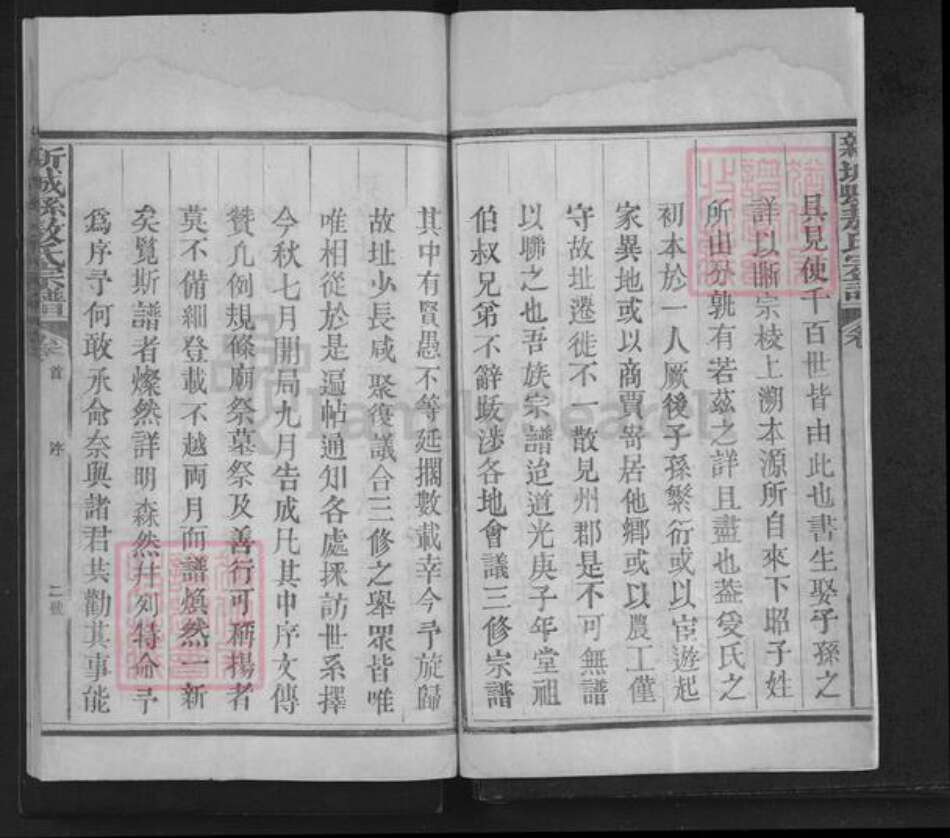 具見使千百世皆由此也書生娶子孫之
詳以晰宗棱上溯本源所自來下昭子姓
所由分孰有若茲之詳且盡也葢爰氏之
初本於一人厥後子孫繁衍或以宦遊起
家異地或以商賈寄居他鄉或以農工僅
守故址遷徙不一散見州郡是不可無譜
以聯之也吾族宗譜迨道光庚子年堂祖
伯叔兄弟不辭跋涉各地會議三修宗譜
其中有賢愚不等延擱數載幸今予旋歸
故址少長咸聚復議合三修之舉眾皆唯
唯相從於是遍帖通知各處採訪世系擇
今秋七月開局九月告成凡其中序文傳
贊凡例規條廟祭墓祭及善行可稱揚者
莫不備細登載不越両月而譜煥然一新
矣覽斯譜者燦然詳明森然井列特命予
爲序予何敢承命奈與諸君共勸其事能
新城縣敖氏宗譜
卷首
序
二號
familysearch